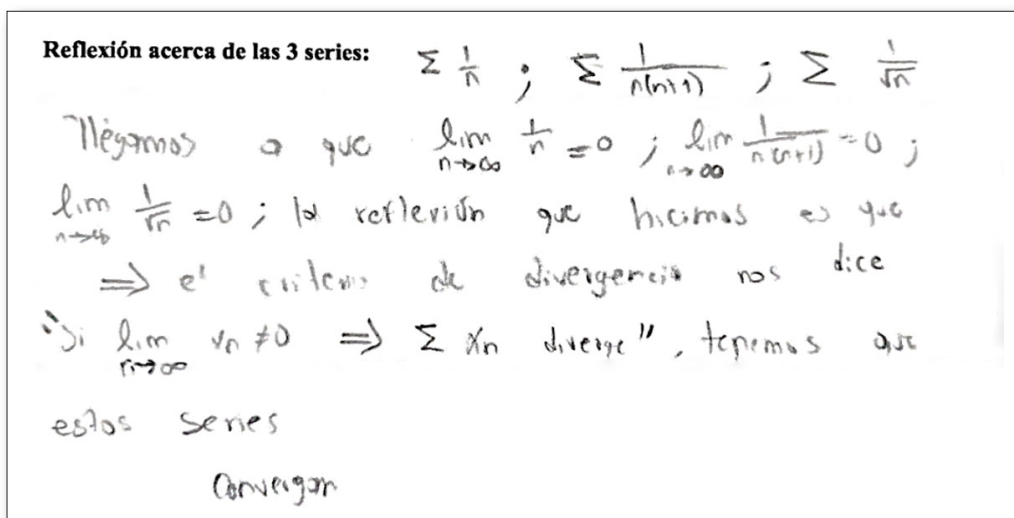 Reflexión acerca de las 3 series: Σ 1/n ; Σ 1/(n(n+1)) ; Σ 1/√n
llegamos a que lim n→∞ 1/n = 0 ; lim n→∞ 1/(n(n+1)) = 0 ;
lim n→∞ 1/√n = 0 ; la reflexión que hicimos es que
⇒ el criterio de divergencia nos dice
"Si lim n→∞ xn ≠ 0 ⇒ Σ xn diverge", tenemos que
estas series
convergan